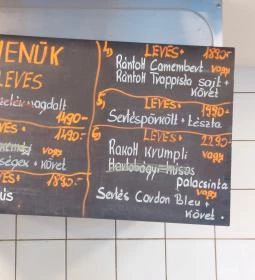 MENÜK
LEVES
magdalt
1490-
VES+ 1490-
vagy
ségek + köret
VES+ 1890.-
4, LEVES+ 1890.-
Rántott Camembert vagy
Rántott Trappista sajt +
köret
5, LEVES+ 1990-
Sertéspörkölt + tészta
6, LEVES+ 2290-
Rakott Krumpli vagy
Hortobágyi húsos
palacsinta
vagy
Sertés Cordon Bleu +
köret.